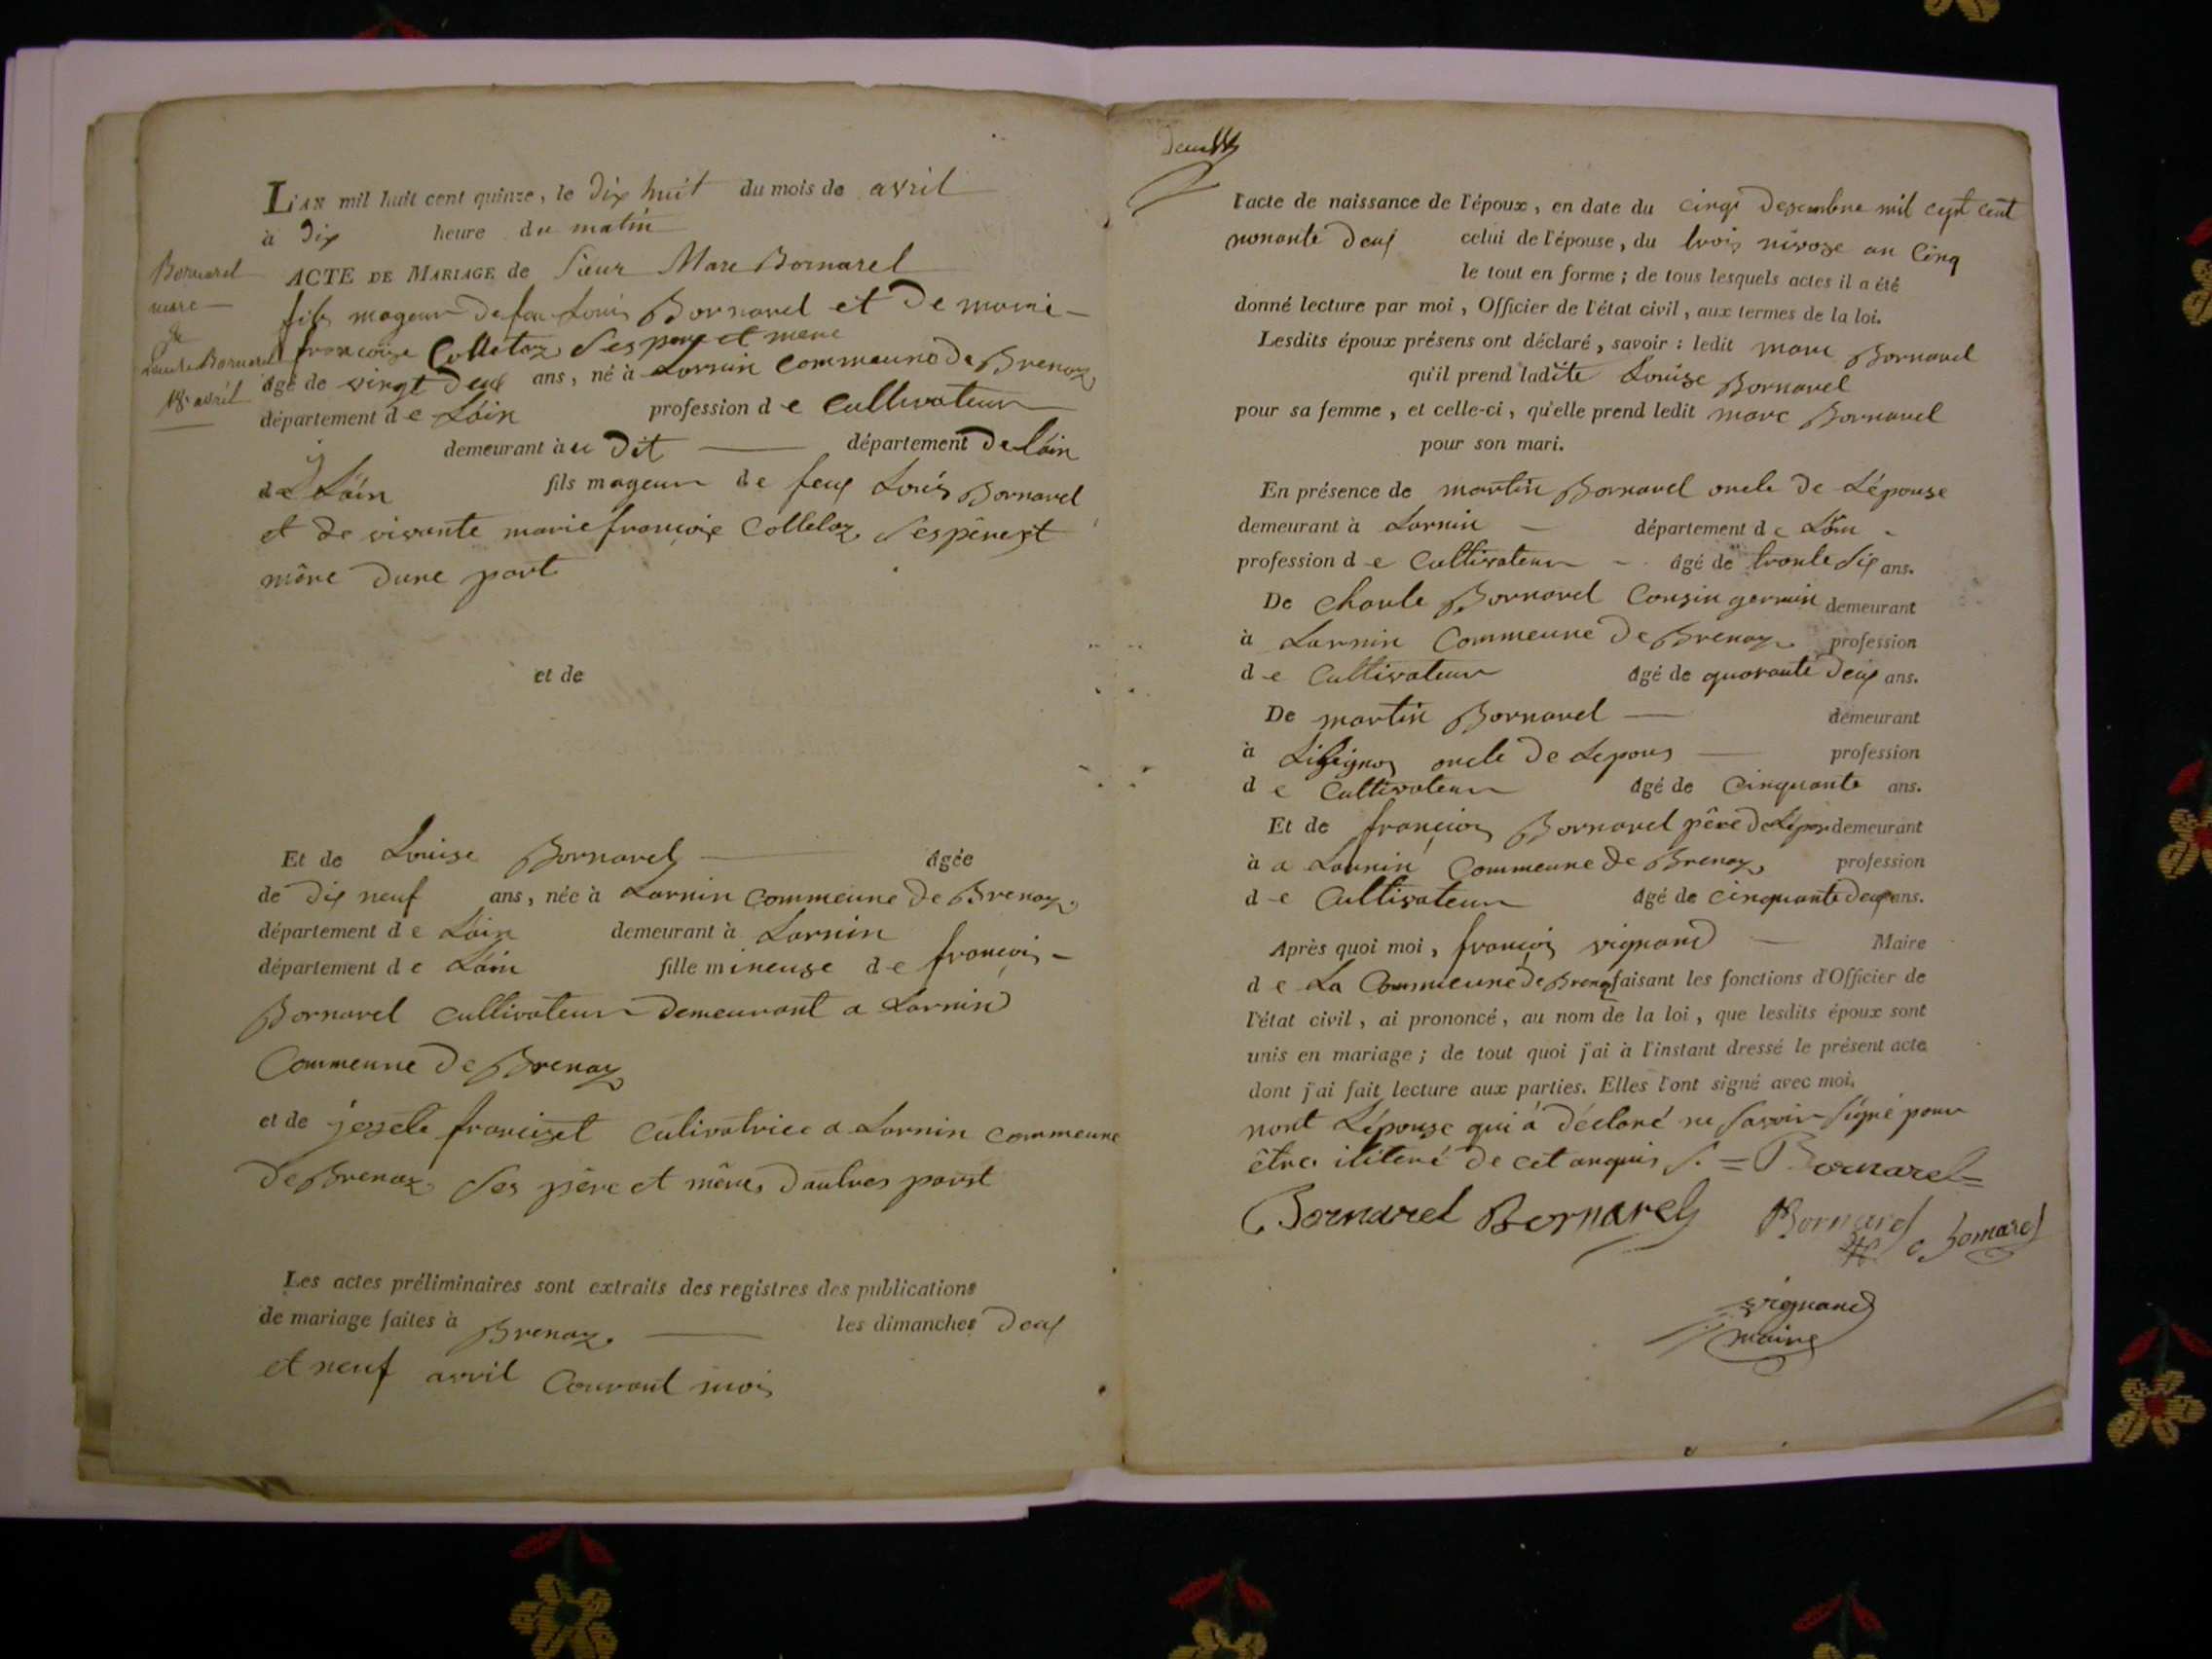 L'AN mil huit cent quinze, le dix huit du mois de avril
à dix heure du matin
ACTE DE MARIAGE de Sieur Marc Bornarel
fils mageur de feu Louis Bornarel et de marie
francoise Colletaz Ses pere et mere
agé de vingt deux ans, né à Lornin Commeune de Brenaz
département de Láin profession de Cultivateur
demeurant au dit département de láin
de Láin fils mageur de feux Louis Bornarel
et de vivante marie françoise Colletaz Ses père et
mère dune part
Bornarel
marc
&
Louise Bornarel
18 avril
et de
Et de Louise Bornarel agée
de dix neuf ans, née à Lornin Commeune de Brenaz
département de Láin demeurant à Lornin
département de Láin fille mineuse de françois
Bornarel Cultivateur demeurant a Lornin
Commeune de Brenaz
et de josete francizet Cultivatrice a Lornin Commeune
de Brenaz Ses père et mères dautres parst
Les actes préliminaires sont extraits des registres des publications
de mariage faites à Brenaz les dimanches deux
et neuf avril Courant mois
l'acte de naissance de l'époux, en date du cinqs desembre mil cept cent
nonante deux celui de l'épouse, du trois nivoze an Cinq
le tout en forme ; de tous lesquels actes il a été
donné lecture par moi, Officier de l'état civil, aux termes de la loi.
Lesdits époux présens ont déclaré, savoir : ledit marc Bornarel
qu'il prend ladite Louise Bornarel
pour sa femme, et celle-ci, qu'elle prend ledit marc Bornarel
pour son mari.
En présence de martin Bornarel oncle de Lépouse
demeurant à Lornin département de Láin
profession de Cultivateur agé de trante Six ans.
De Charle Bornarel Cousin germin demeurant
à Lornin Commeune de Brenaz profession
de Cultivateur agé de quarante deux ans.
De martin Bornarel demeurant
à oncle de Lepous profession
de Cultivateur agé de Cinquante ans.
Et de françios Bornarel père de Lépos demeurant
à a Lornin Commeune de Brenaz profession
de Cultivateur agé de cinquante deux ans.
Après quoi moi, françois vignand Maire
de La Commeune de Brenaz faisant les fonctions d'Officier de
l'état civil, ai prononcé, au nom de la loi, que lesdits époux sont
unis en mariage ; de tout quoi j'ai à l'instant dressé le présent acte
dont j'ai fait lecture aux parties. Elles l'ont signé avec moi.
nont Lépouse qui a déclaré ne Savoir Signé pour
être iliteré de cet anquis S. = Bornarel =
Bornarel Bornarel Bornarel Bornarel
vignand
maire